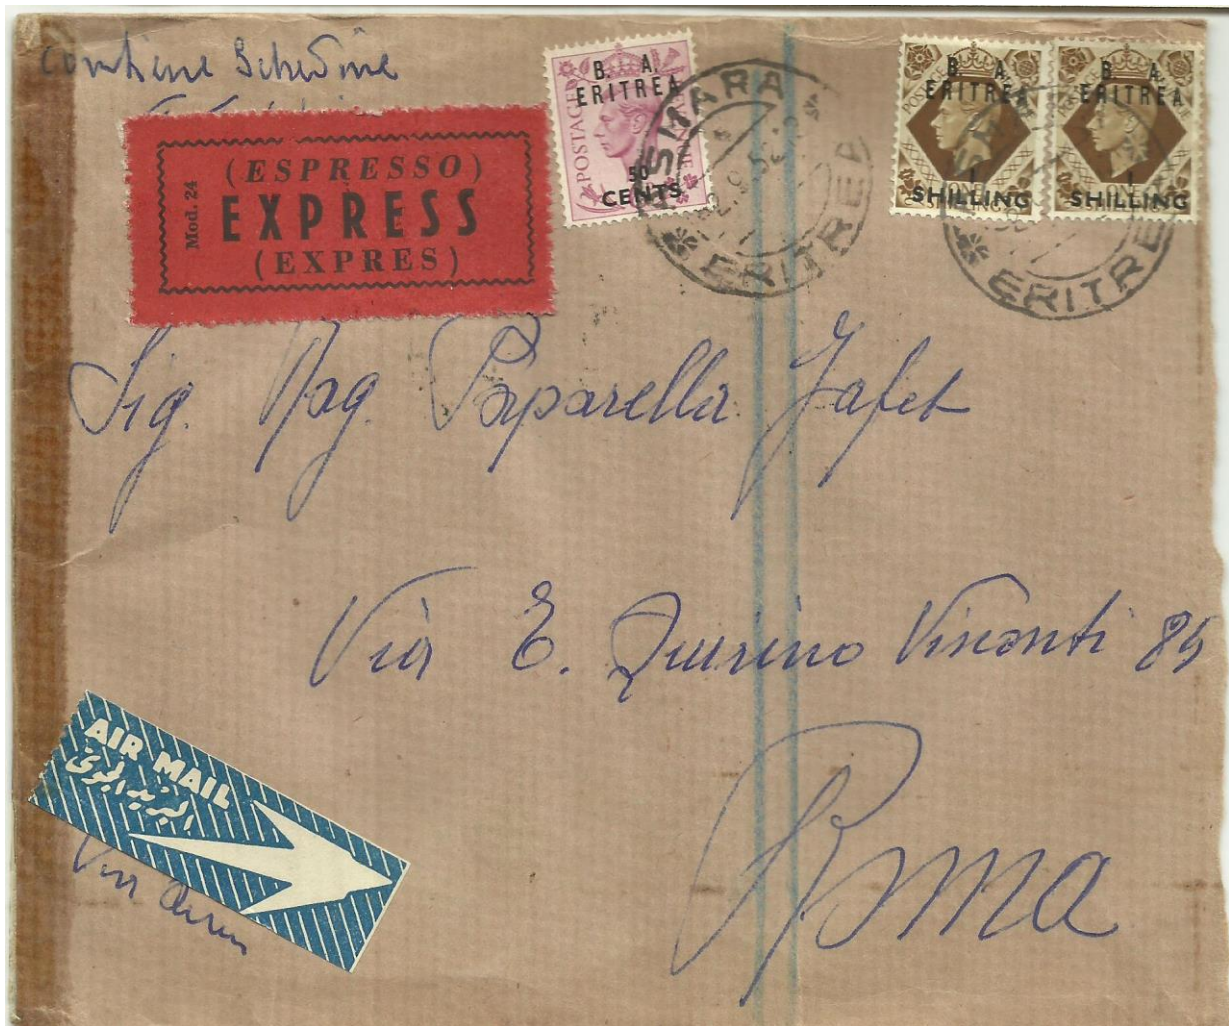 Contiene Schedine
(ESPRESSO)
EXPRESS
(EXPRES)
Mod. 24
B. A.
ERITREA
POSTAGE
50
CENTS
B. A.
ERITREA
1
SHILLING
B. A.
ERITREA
1
SHILLING
ASMARA
ERITREA
ERITREA
Sig. Rag. Paparella Jafet
Via E. Quirino Visconti 85
Roma
AIR MAIL
البريد الجوى
Via aerea